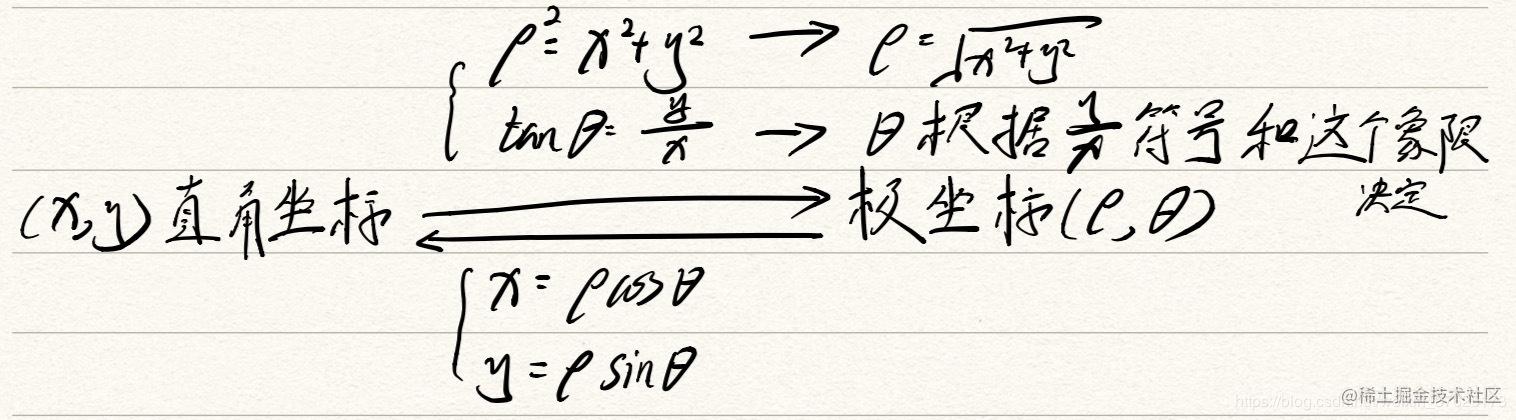 ρ² = x² + y² → ρ = √(x² + y²)
tan θ = y/x → θ 根据 y/x 符号和这个象限
决定
(x, y) 直角坐标 极坐标 (ρ, θ)
x = ρ cos θ
y = ρ sin θ
@稀土掘金技术社区